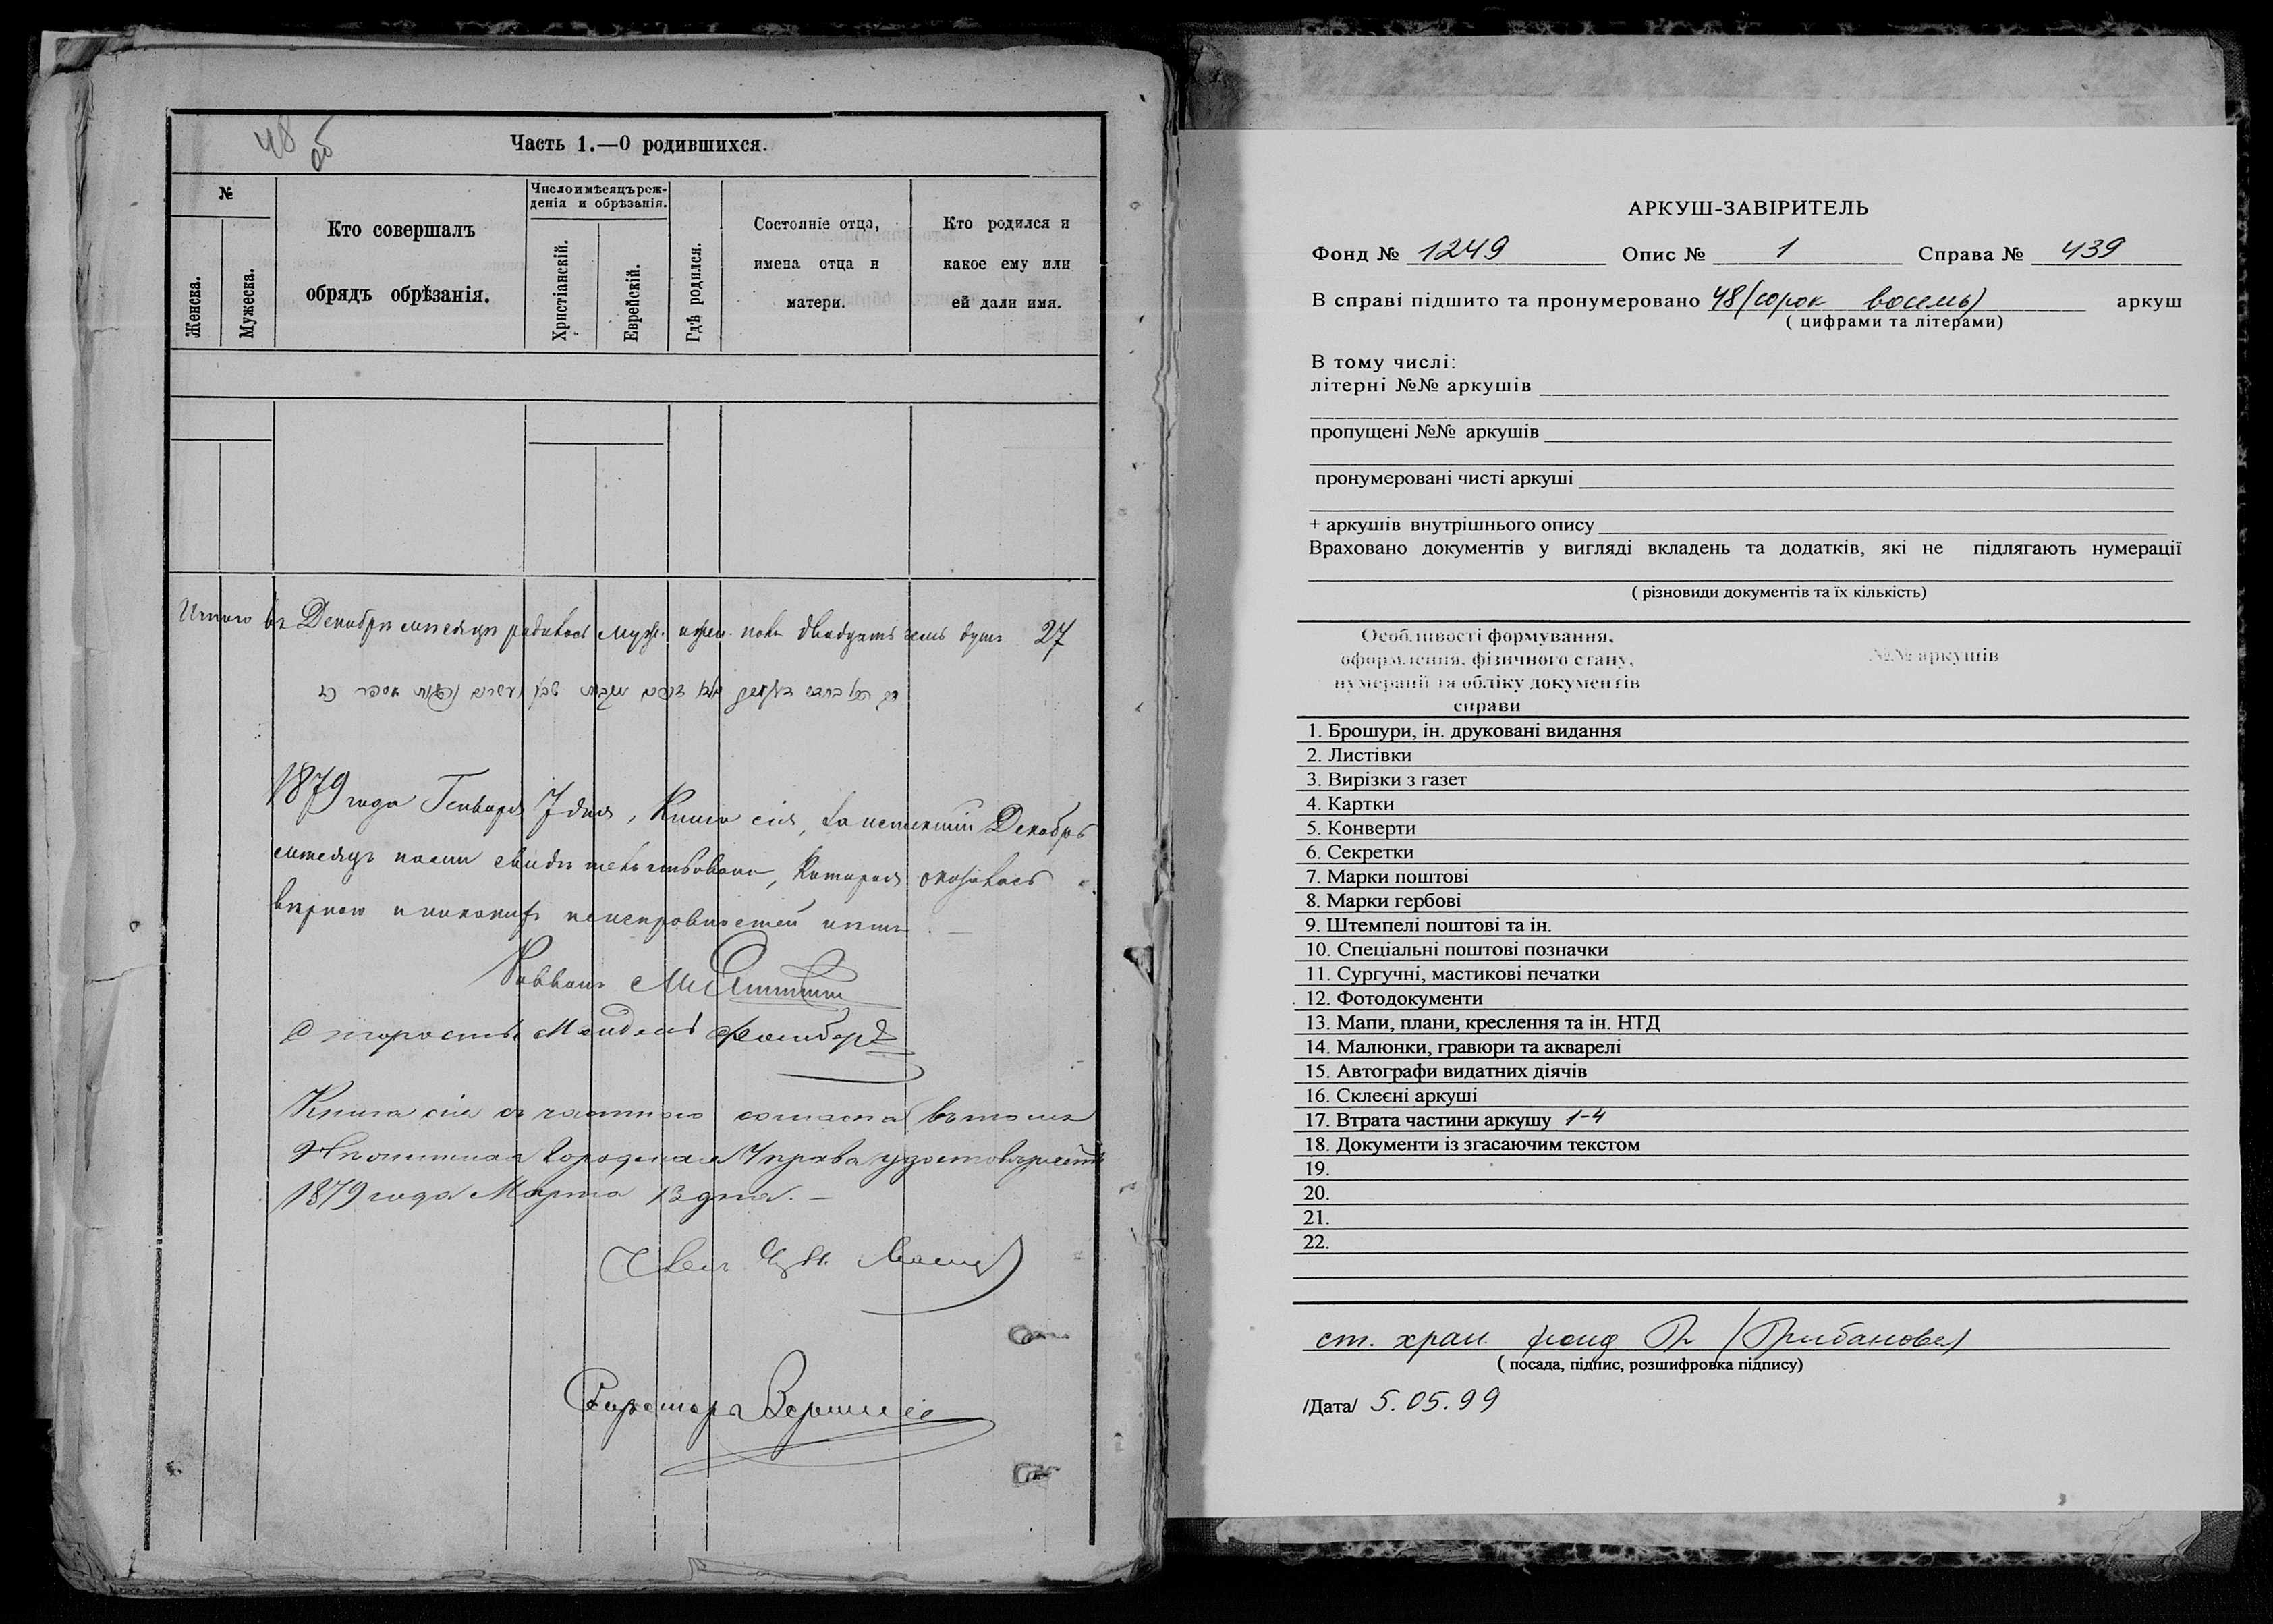 48
об
Часть 1.—О родившихся.
№
Женска.
Мужеска.
Кто совершалъ
обрядъ обрѣзанія.
Число и мѣсяцъ рож-
денія и обрѣзанія.
Христіанскій.
Еврейскій.
Гдѣ родился.
Состояніе отца,
имена отца и
матери.
Кто родился и
какое ему или
ей дали имя.
Итого въ Декабрѣ мѣсяцѣ родилось муж. и жен. пола двадцать семь душъ 27
1879 года Генваря 7 дня, Книга сія, за истекшій Декабрь
мѣсяцъ нами свидѣтельствована, которая оказалась
вѣрною и никакихъ неисправностей нѣтъ.
Раввинъ
Староста Мендель
Книга сія съ частною согласна въ томъ
Городская Управа удостовѣряетъ
1879 года Марта 13 дня. —
Секретарь
АРКУШ-ЗАВІРИТЕЛЬ
Фонд № 1249 Опис № 1 Справа № 439
В справі підшито та пронумеровано 48 (сорок восемь) аркуш
( цифрами та літерами)
В тому числі:
літерні №№ аркушів
пропущені №№ аркушів
пронумеровані чисті аркуші
+ аркушів внутрішнього опису
Враховано документів у вигляді вкладень та додатків, які не підлягають нумерації
( різновиди документів та їх кількість)
Особливості формування,
оформлення, фізичного стану,
нумерації та обліку документів
справи
№№ аркушів
1. Брошури, ін. друковані видання
2. Листівки
3. Вирізки з газет
4. Картки
5. Конверти
6. Секретки
7. Марки поштові
8. Марки гербові
9. Штемпелі поштові та ін.
10. Спеціальні поштові позначки
11. Сургучні, мастикові печатки
12. Фотодокументи
13. Мапи, плани, креслення та ін. НТД
14. Малюнки, гравюри та акварелі
15. Автографи видатних діячів
16. Склеєні аркуші
17. Втрата частини аркушу 1-4
18. Документи із згасаючим текстом
19.
20.
21.
22.
ст. хран. фонд (Грибанова)
( посада, підпис, розшифровка підпису)
/Дата/ 5.05.99